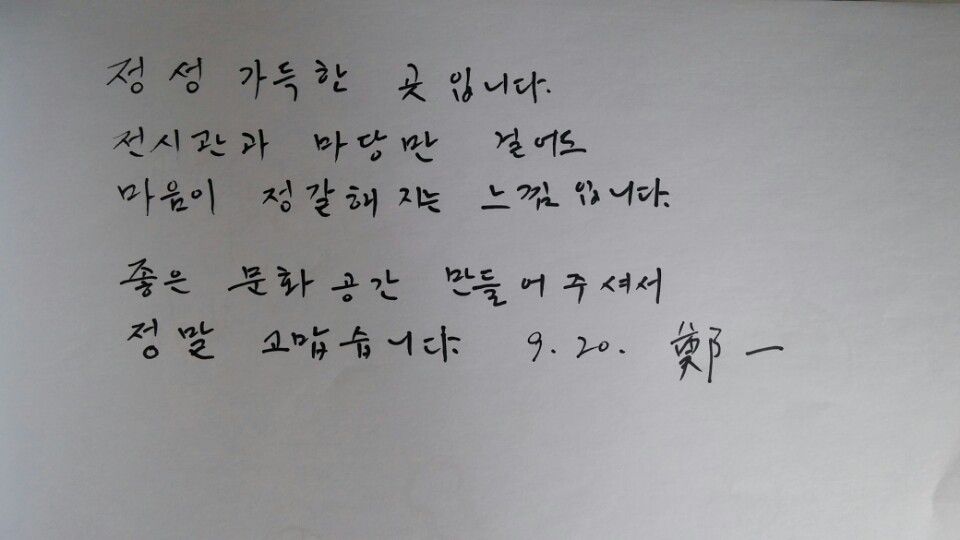 정성 가득한 곳입니다.
전시관과 마당만 걸어도
마음이 정갈해 지는 느낌입니다.
좋은 문화공간 만들어주셔서
정말 고맙습니다. 9. 20. 鄭一